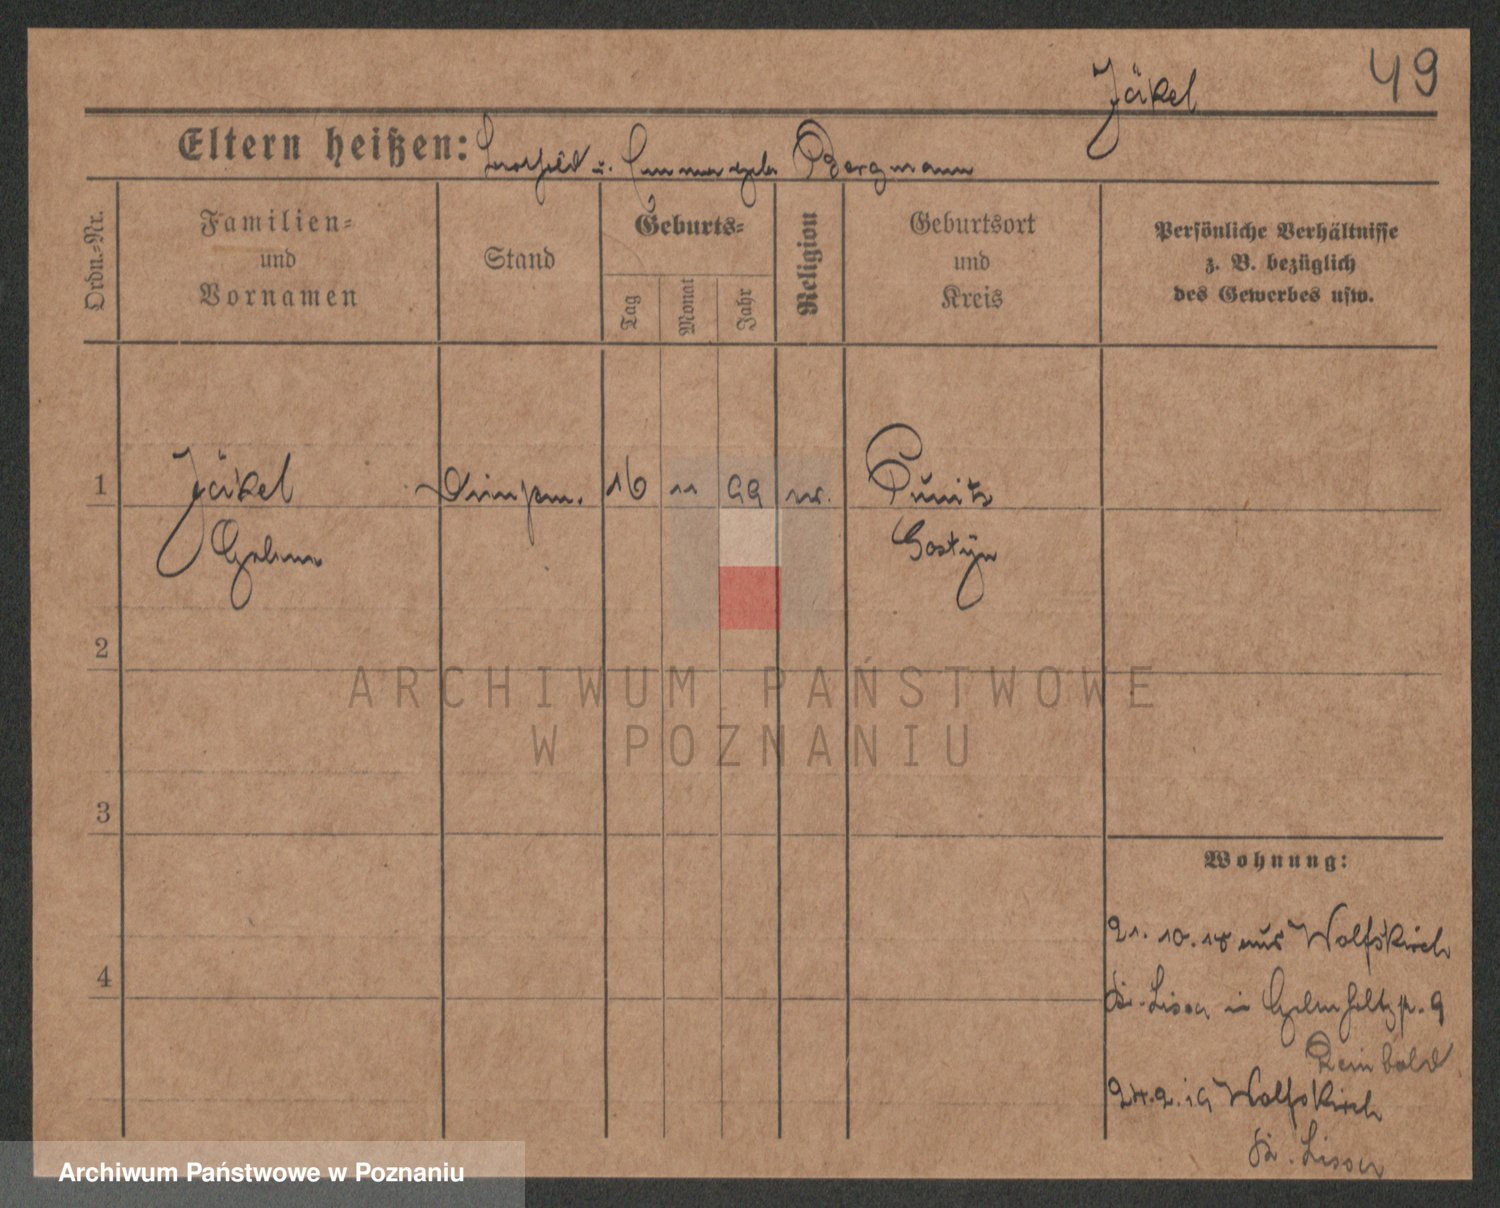 49
Jäkel
Eltern heißen: u. Bergmann
Ordn.-Nr.
Familien-
und
Vornamen
Stand
Geburts-
Tag
Monat
Jahr
Religion
Geburtsort
und
Kreis
Persönliche Verhältnisse
z. B. bezüglich
des Gewerbes usw.
1
Jäkel
16 11 99
Punitz
Gostyn
2
3
4
ARCHIWUM PAŃSTWOWE
W POZNANIU
Wohnung:
21.10.18 aus Wolfskirch
Kr. Lissa in 9
Reinbold
24.2.19 Wolfskirch
Kr. Lissa
Archiwum Państwowe w Poznaniu